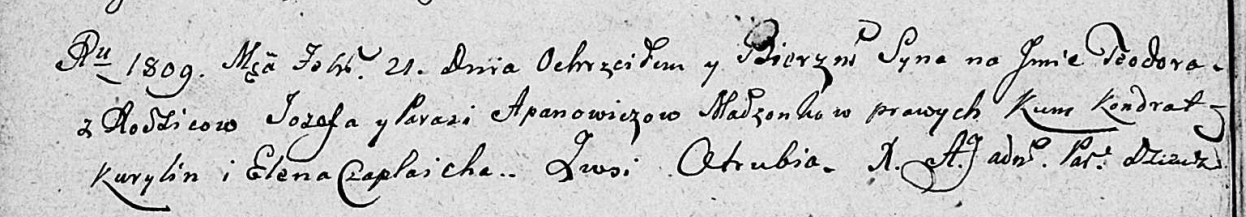 Ru 1809. Mca Febr. 21. Dnia Ochrzciłem y Bierzm Syna na Jmie Teodora.
z Rodzicow Jozefa y Parasi Apanowiczow Małzonkow prawych Kum Kondrat
Kurylin i Elena Czaplaicha.. Zwsi Otrubia. X. A.